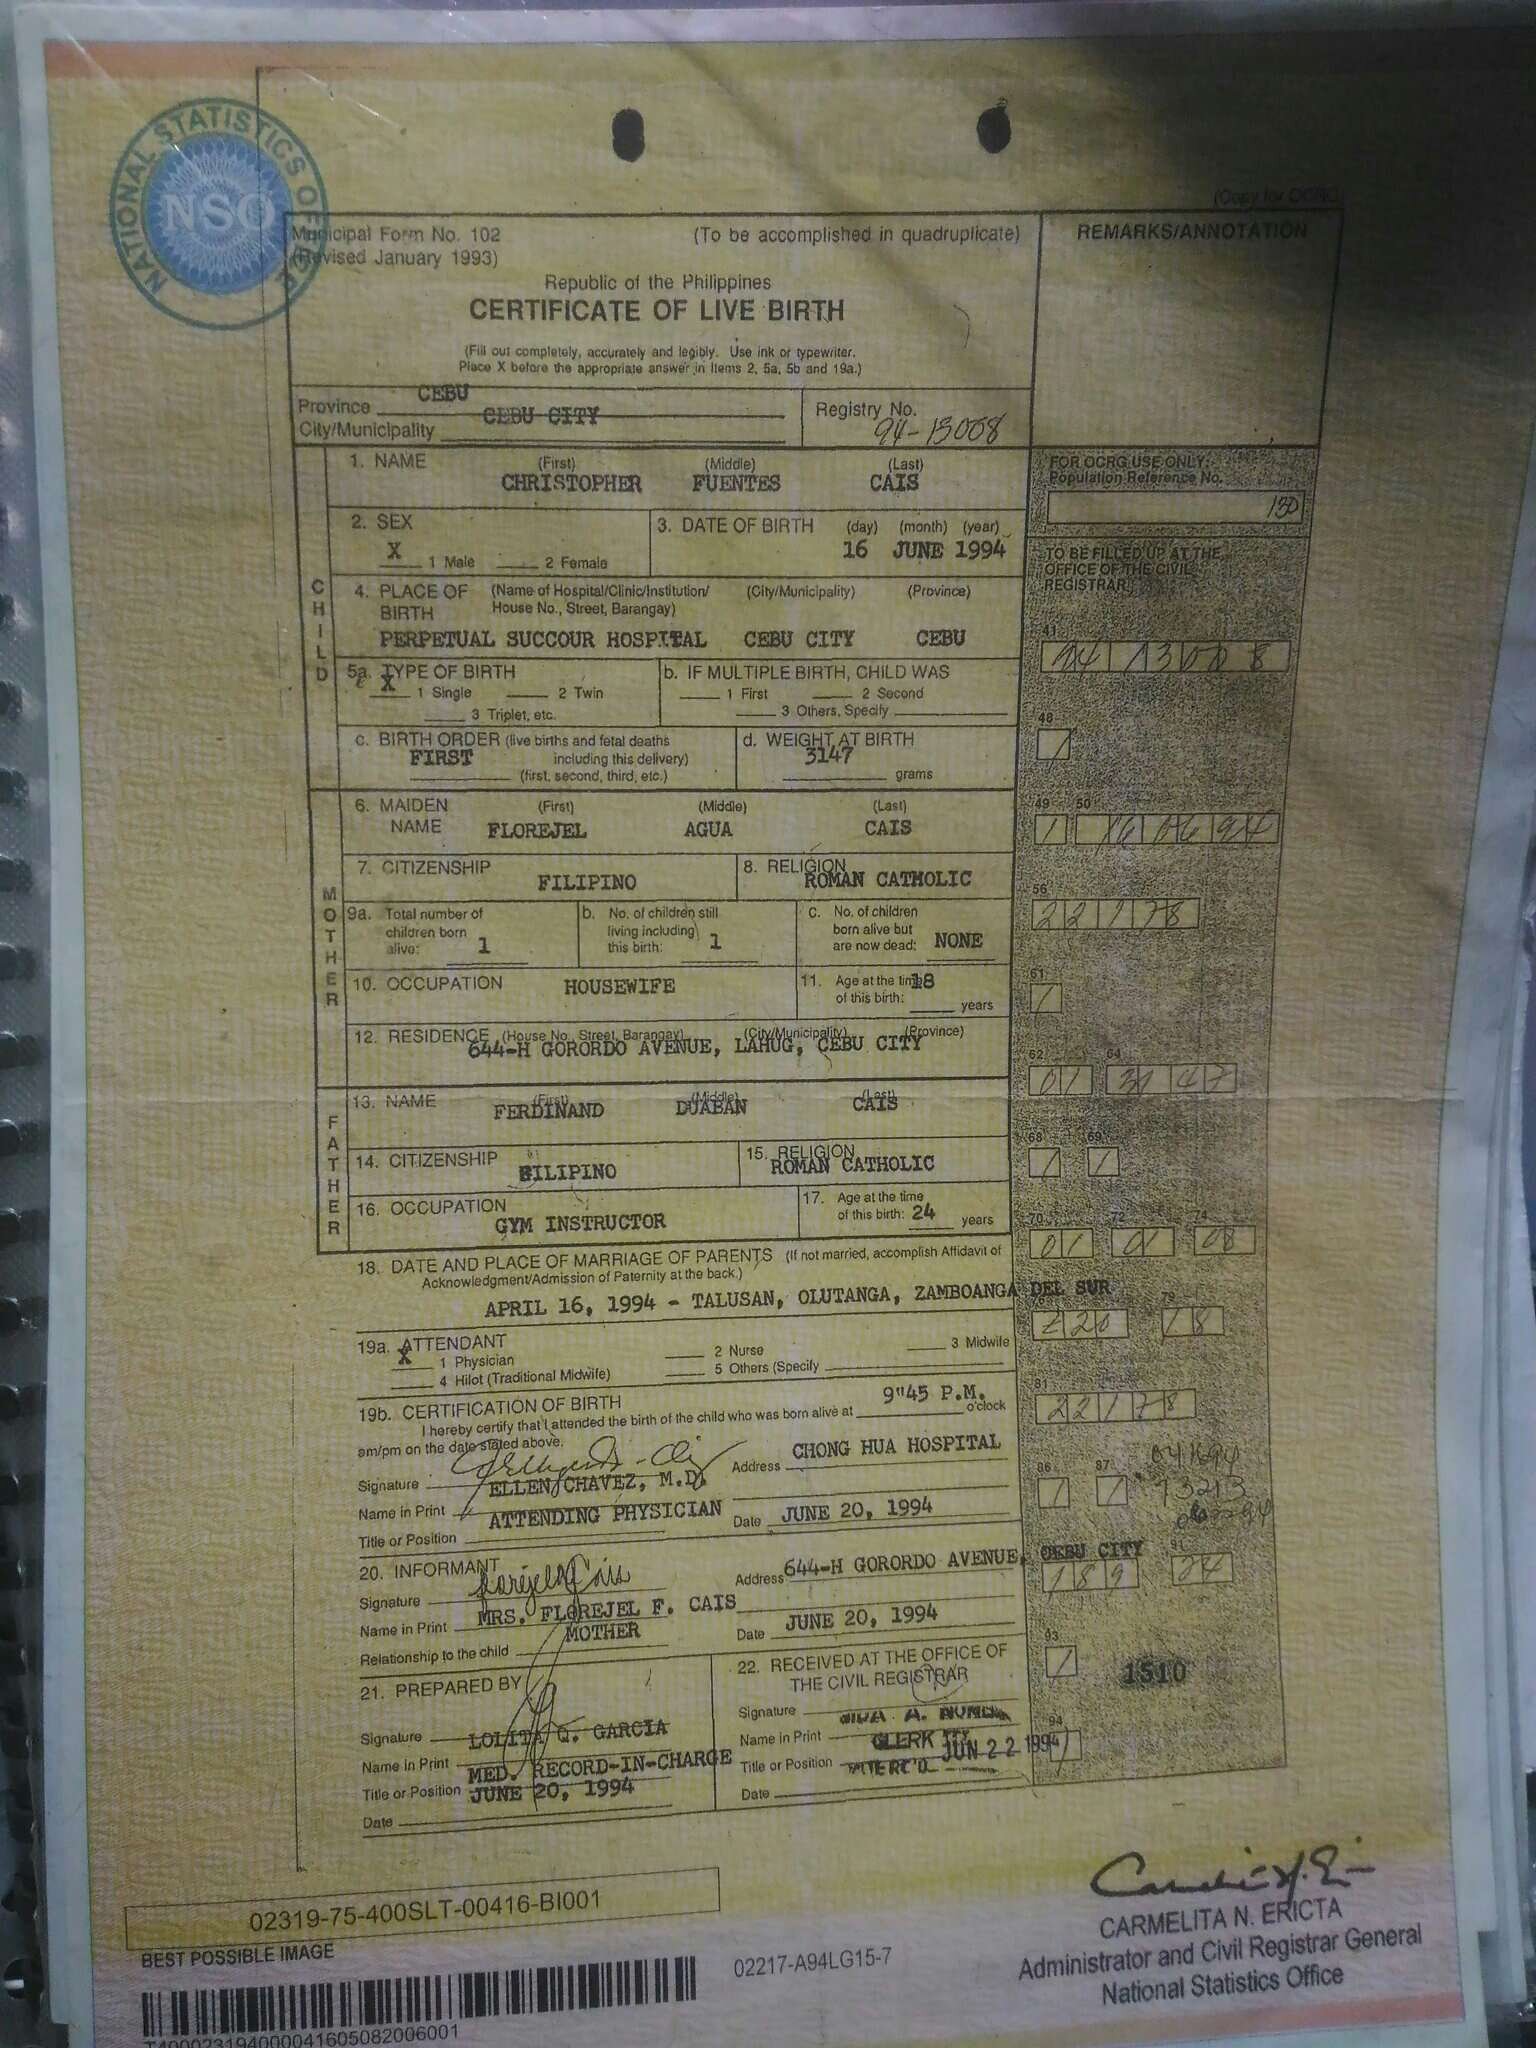 NATIONAL STATISTICS OFFICE
NSO
(Copy for OCRG)
Municipal Form No. 102 (To be accomplished in quadruplicate) REMARKS/ANNOTATION
(Revised January 1993)
Republic of the Philippines
CERTIFICATE OF LIVE BIRTH
(Fill out completely, accurately and legibly. Use ink or typewriter.
Place X before the appropriate answer in Items 2, 5a, 5b and 19a.)
Province CEBU
City/Municipality CEBU CITY
Registry No.
94-13008
1. NAME (First) (Middle) (Last)
CHRISTOPHER FUENTES CAIS
FOR OCRG USE ONLY:
Population Reference No.
150
2. SEX
X 1 Male 2 Female
3. DATE OF BIRTH (day) (month) (year)
16 JUNE 1994
TO BE FILLED UP AT THE
OFFICE OF THE CIVIL
REGISTRAR
CHILD
4. PLACE OF BIRTH (Name of Hospital/Clinic/Institution/ House No., Street, Barangay) (City/Municipality) (Province)
PERPETUAL SUCCOUR HOSPITAL CEBU CITY CEBU
41
94 13008
5a. TYPE OF BIRTH
X 1 Single 2 Twin
3 Triplet, etc.
b. IF MULTIPLE BIRTH, CHILD WAS
1 First 2 Second
3 Others, Specify
c. BIRTH ORDER (live births and fetal deaths
FIRST including this delivery)
(first, second, third, etc.)
d. WEIGHT AT BIRTH
3147
grams
48
1
MOTHER
6. MAIDEN NAME (First) (Middle) (Last)
FLOREJEL AGUA CAIS
49 50
1 160694
7. CITIZENSHIP
FILIPINO
8. RELIGION
ROMAN CATHOLIC
56
22178
9a. Total number of
children born
alive: 1
b. No. of children still
living including
this birth: 1
c. No. of children
born alive but
are now dead: NONE
10. OCCUPATION HOUSEWIFE
11. Age at the time 18
of this birth: years
61
1
12. RESIDENCE (House No., Street, Barangay) (City/Municipality) (Province)
644-H GORORDO AVENUE, LAHUG, CEBU CITY
62 64
01 3147
FATHER
13. NAME (First) (Middle) (Last)
FERDINAND DUABAN CAIS
14. CITIZENSHIP
FILIPINO
15. RELIGION
ROMAN CATHOLIC
68 69
1 1
16. OCCUPATION
GYM INSTRUCTOR
17. Age at the time
of this birth: 24 years
70 72 74
01 01 08
18. DATE AND PLACE OF MARRIAGE OF PARENTS (If not married, accomplish Affidavit of
Acknowledgment/Admission of Paternity at the back.)
APRIL 16, 1994 - TALUSAN, OLUTANGA, ZAMBOANGA DEL SUR
76 79
220 18
19a. ATTENDANT
X 1 Physician 2 Nurse 3 Midwife
4 Hilot (Traditional Midwife) 5 Others (Specify
19b. CERTIFICATION OF BIRTH
I hereby certify that I attended the birth of the child who was born alive at 9"45 P.M. o'clock
am/pm on the date stated above.
81
22178
Signature
Name in Print ELLEN CHAVEZ, M.D.
Title or Position ATTENDING PHYSICIAN
Address CHONG HUA HOSPITAL
Date JUNE 20, 1994
86 87
1 1
041694
73213
20. INFORMANT
Signature Florejel Cais
Name in Print MRS. FLOREJEL F. CAIS
Relationship to the child MOTHER
Address 644-H GORORDO AVENUE, CEBU CITY
Date JUNE 20, 1994
91
189 24
21. PREPARED BY
Signature
Name in Print LOLITA Q. GARCIA
Title or Position MED. RECORD-IN-CHARGE
Date JUNE 20, 1994
22. RECEIVED AT THE OFFICE OF
THE CIVIL REGISTRAR
Signature
Name in Print A.
Title or Position CLERK III
JUN 22 1994
Date
93
1
1510
94
1
02319-75-400SLT-00416-BI001
BEST POSSIBLE IMAGE
02217-A94LG15-7
CARMELITA N. ERICTA
Administrator and Civil Registrar General
National Statistics Office
T400023194000041605082006001